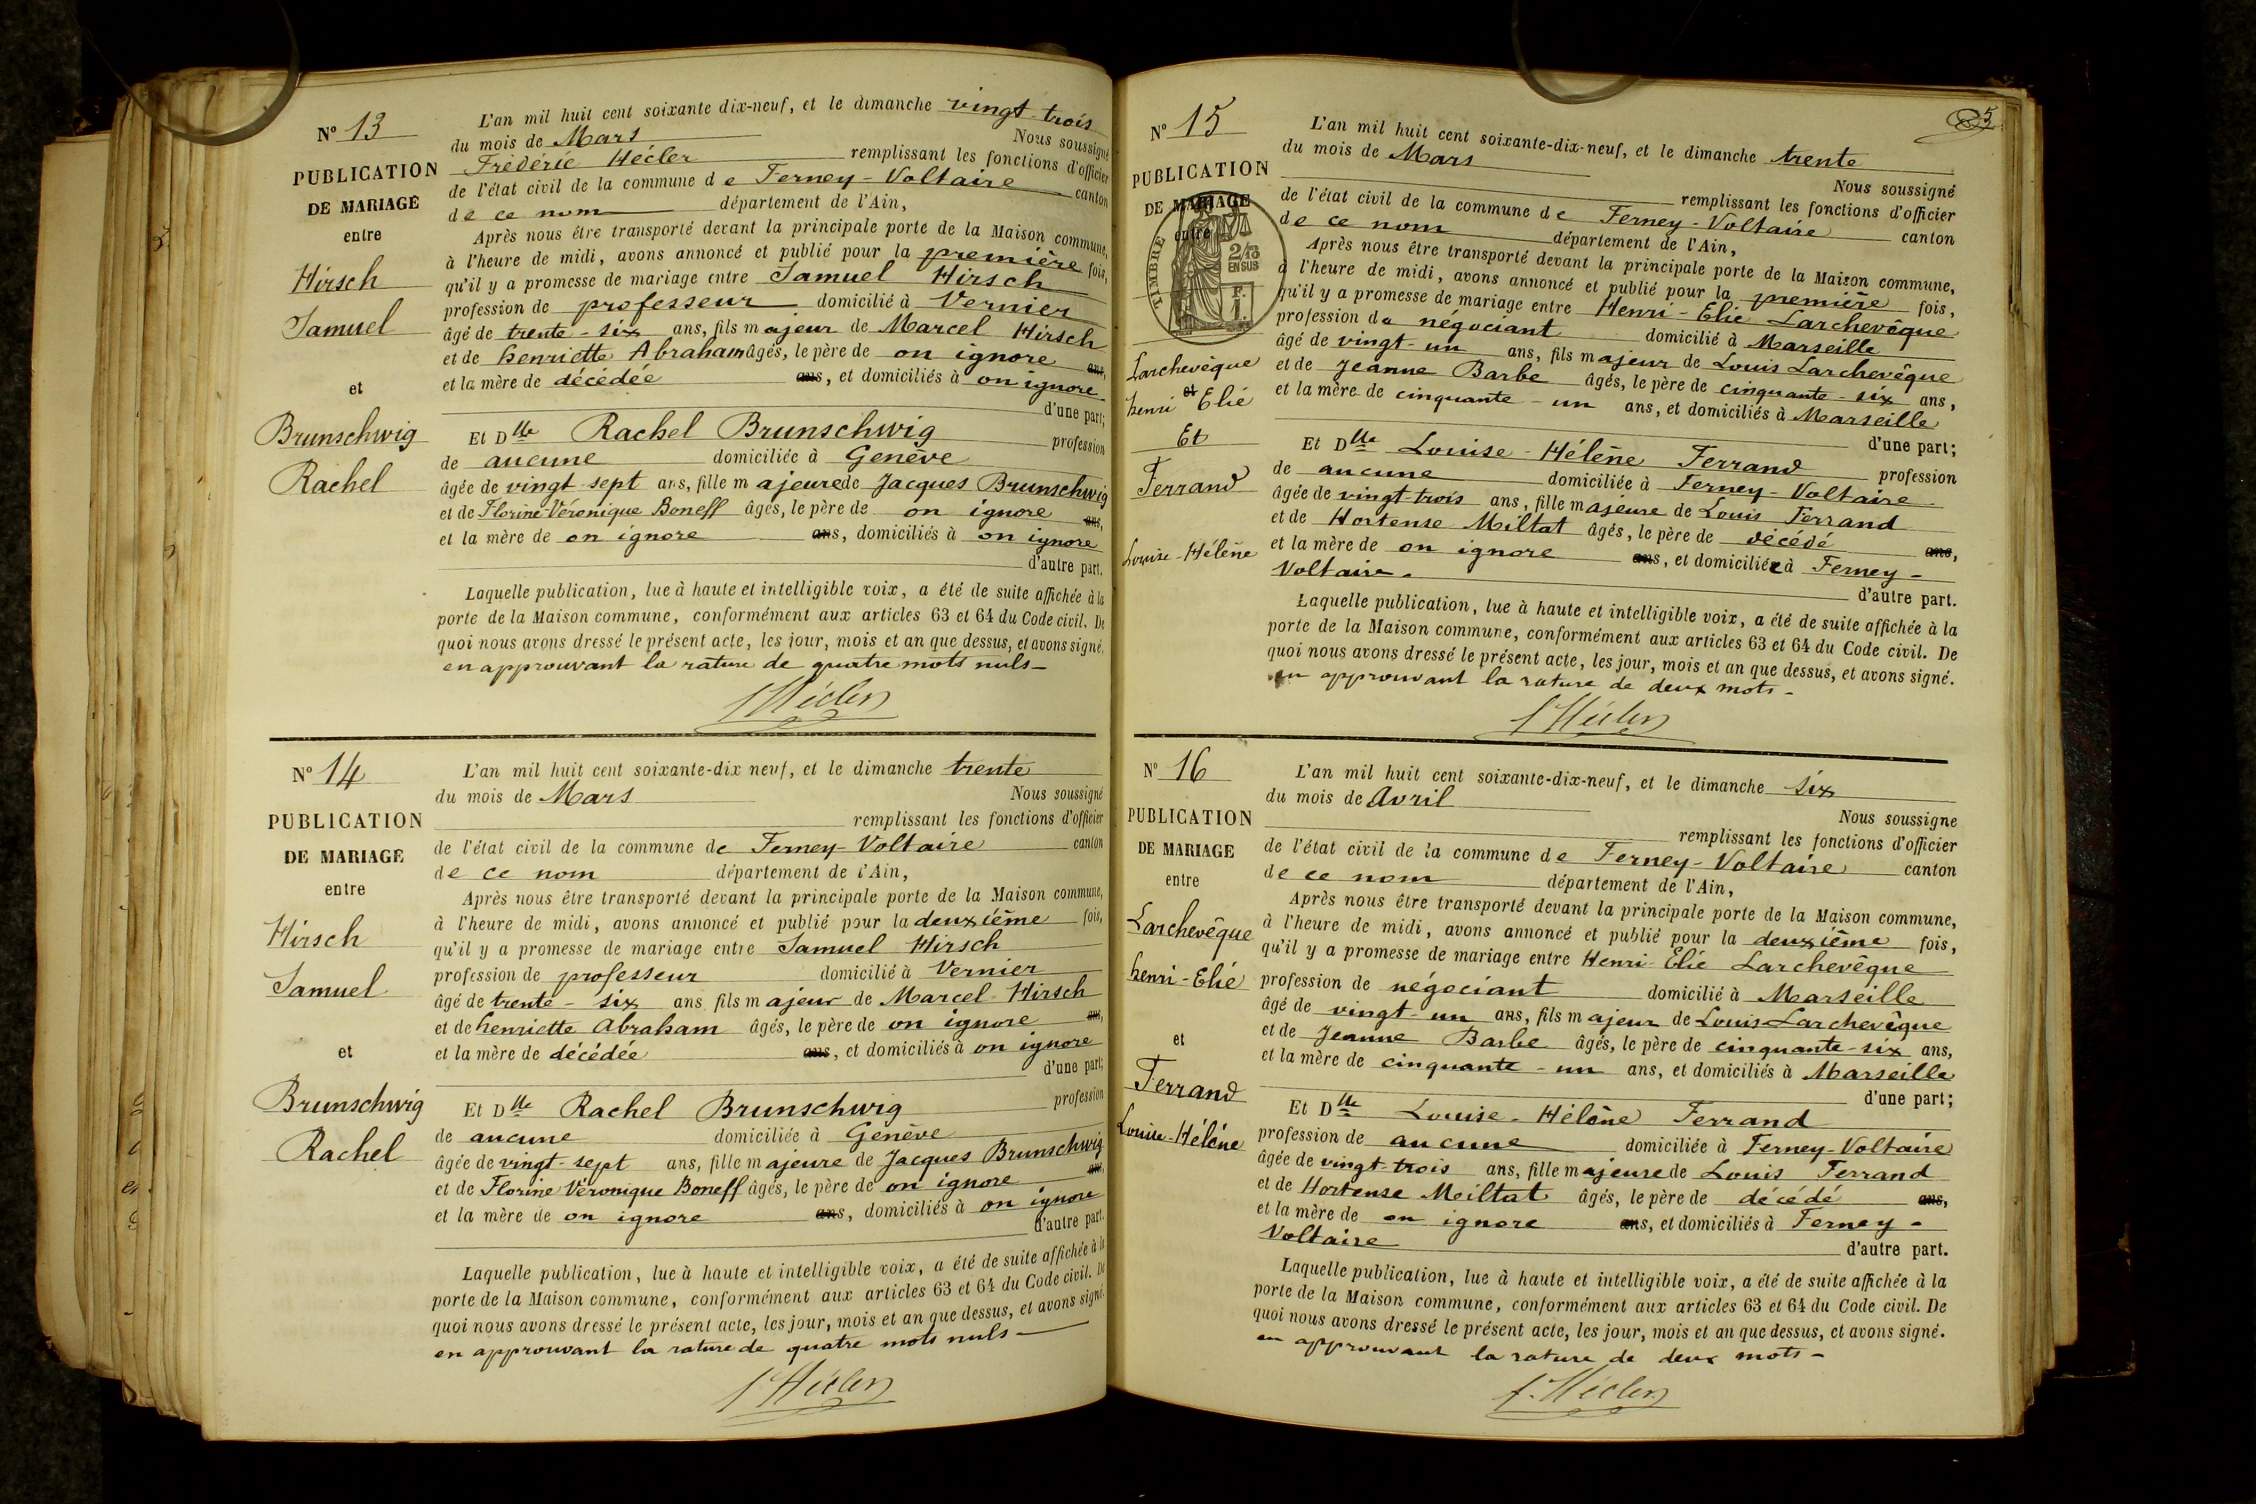 N° 13
PUBLICATION
DE MARIAGE
entre
Hirsch
Samuel
et
Brunschwig
Rachel
L'an mil huit cent soixante dix-neuf, et le dimanche vingt-trois
du mois de Mars Nous soussigné
Frédéric Hécler remplissant les fonctions d'officier
de l'état civil de la commune de Ferney-Voltaire canton
de ce nom département de l'Ain,
Après nous être transporté devant la principale porte de la Maison commune,
à l'heure de midi, avons annoncé et publié pour la première fois,
qu'il y a promesse de mariage entre Samuel Hirsch
profession de professeur domicilié à Vernier
âgé de trente-six ans, fils majeur de Marcel Hirsch
et de henriette Abraham âgés, le père de on ignore ans,
et la mère de décédée ans, et domiciliés à on ignore
d'une part;
Et Dlle Rachel Brunschwig profession
de aucune domiciliée à Genève
âgée de vingt-sept ans, fille majeure de Jacques Brunschwig
et de Florine Véronique Boneff âgés, le père de on ignore ans,
et la mère de on ignore ans, domiciliés à on ignore
d'autre part.
Laquelle publication, lue à haute et intelligible voix, a été de suite affichée à la
porte de la Maison commune, conformément aux articles 63 et 64 du Code civil. De
quoi nous avons dressé le présent acte, les jour, mois et an que dessus, et avons signé.
en approuvant la rature de quatre mots nuls-
f Hécler
N° 14
PUBLICATION
DE MARIAGE
entre
Hirsch
Samuel
et
Brunschwig
Rachel
L'an mil huit cent soixante-dix neuf, et le dimanche trente
du mois de Mars Nous soussigné
remplissant les fonctions d'officier
de l'état civil de la commune de Ferney-Voltaire canton
de ce nom département de l'Ain,
Après nous être transporté devant la principale porte de la Maison commune,
à l'heure de midi, avons annoncé et publié pour la deuxième fois,
qu'il y a promesse de mariage entre Samuel Hirsch
profession de professeur domicilié à Vernier
âgé de trente-six ans fils majeur de Marcel Hirsch
et de henriette Abraham âgés, le père de on ignore ans,
et la mère de décédée ans, et domiciliés à on ignore
d'une part;
Et Dlle Rachel Brunschwig profession
de aucune domiciliée à Genève
âgée de vingt-sept ans, fille majeure de Jacques Brunschwig
et de Florine Véronique Boneff âgés, le père de on ignore ans,
et la mère de on ignore ans, domiciliés à on ignore
d'autre part.
Laquelle publication, lue à haute et intelligible voix, a été de suite affichée à la
porte de la Maison commune, conformément aux articles 63 et 64 du Code civil. De
quoi nous avons dressé le présent acte, les jour, mois et an que dessus, et avons signé.
en approuvant la rature de quatre mots nuls-
f Hécler
5
N° 15
PUBLICATION
DE MARIAGE
entre
TIMBRE
2/10
EN SUS
F.
1.
Larchevêque
et
henri Elie
Et
Ferrand
Louise-Hélène
L'an mil huit cent soixante-dix-neuf, et le dimanche trente
du mois de Mars
Nous soussigné
remplissant les fonctions d'officier
de l'état civil de la commune de Ferney-Voltaire canton
de ce nom département de l'Ain,
Après nous être transporté devant la principale porte de la Maison commune,
à l'heure de midi, avons annoncé et publié pour la première fois,
qu'il y a promesse de mariage entre Henri-Elie Larchevêque
profession de négociant domicilié à Marseille
âgé de vingt-un ans, fils majeur de Louis Larchevêque
et de Jeanne Barbe âgés, le père de cinquante-six ans,
et la mère de cinquante-un ans, et domiciliés à Marseille
d'une part;
Et Dlle Louise-Hélène Ferrand profession
de aucune domiciliée à Ferney-Voltaire
âgée de vingt-trois ans, fille majeure de Louis Ferrand
et de Hortense Miltat âgés, le père de décédé ans,
et la mère de on ignore ans, et domiciliée à Ferney-
Voltaire.
d'autre part.
Laquelle publication, lue à haute et intelligible voix, a été de suite affichée à la
porte de la Maison commune, conformément aux articles 63 et 64 du Code civil. De
quoi nous avons dressé le présent acte, les jour, mois et an que dessus, et avons signé.
en approuvant la rature de deux mots-
f Hécler
N° 16
PUBLICATION
DE MARIAGE
entre
Larchevêque
henri-Elie
et
Ferrand
Louise-Hélène
L'an mil huit cent soixante-dix-neuf, et le dimanche six
du mois de Avril
Nous soussigne
remplissant les fonctions d'officier
de l'état civil de la commune de Ferney-Voltaire canton
de ce nom département de l'Ain,
Après nous être transporté devant la principale porte de la Maison commune,
à l'heure de midi, avons annoncé et publié pour la deuxième fois,
qu'il y a promesse de mariage entre Henri-Elie Larchevêque
profession de négociant domicilié à Marseille
âgé de vingt-un ans, fils majeur de Louis Larchevêque
et de Jeanne Barbe âgés, le père de cinquante-six ans,
et la mère de cinquante-un ans, et domiciliés à Marseille
d'une part;
Et Dlle Louise-Hélène Ferrand
profession de aucune domiciliée à Ferney-Voltaire
âgée de vingt-trois ans, fille majeure de Louis Ferrand
et de Hortense Meiltat âgés, le père de décédé ans,
et la mère de on ignore ans, et domiciliés à Ferney-
Voltaire
d'autre part.
Laquelle publication, lue à haute et intelligible voix, a été de suite affichée à la
porte de la Maison commune, conformément aux articles 63 et 64 du Code civil. De
quoi nous avons dressé le présent acte, les jour, mois et an que dessus, et avons signé.
en approuvant la rature de deux mots-
f. Hécler